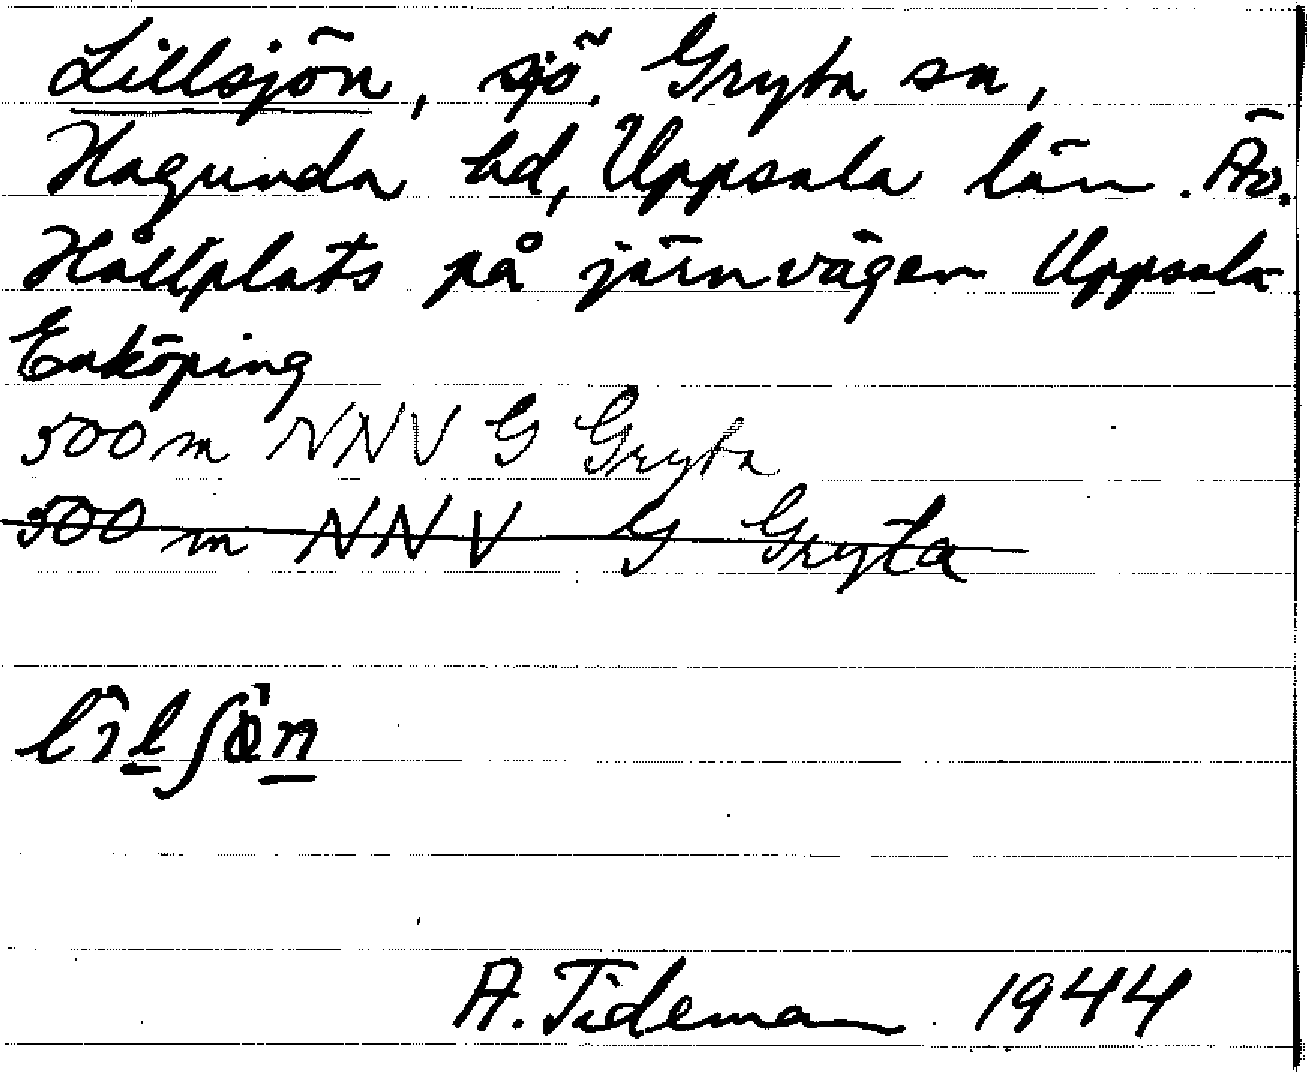 Lillsjön, sjö. Gryta sn,
Hagunda hd, Uppsala län. Äv.
Hållplats på järnvägen Uppsala-
Enköping
500 m NNV G Gryta
500 m NNV G Gryta
lìlʃö̀n
A. Tideman 1944